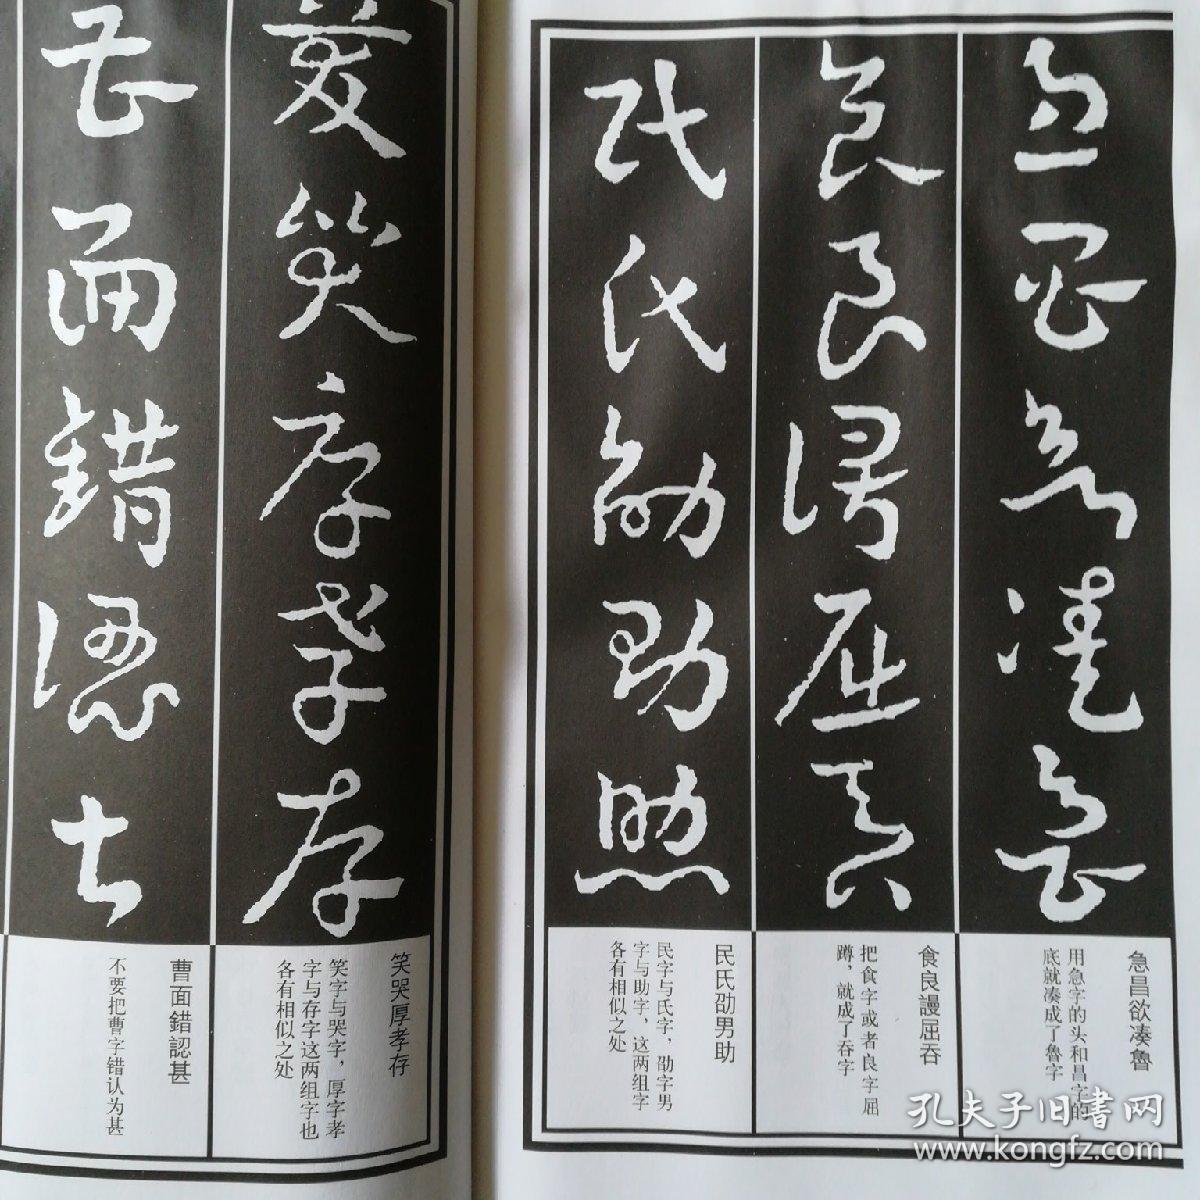 急昌欲凑魯
用急字的头和昌字的
底就凑成了魯字
食良謾屈吞
把食字或者良字屈
蹲，就成了吞字
民氏劭男助
民字与氏字，劭字男
字与助字，这两组字
各有相似之处
笑哭厚孝存
笑字与哭字，厚字孝
字与存字这两组字也
各有相似之处
曹面錯認甚
不要把曹字错认为甚
孔夫子旧書网
www.kongfz.com